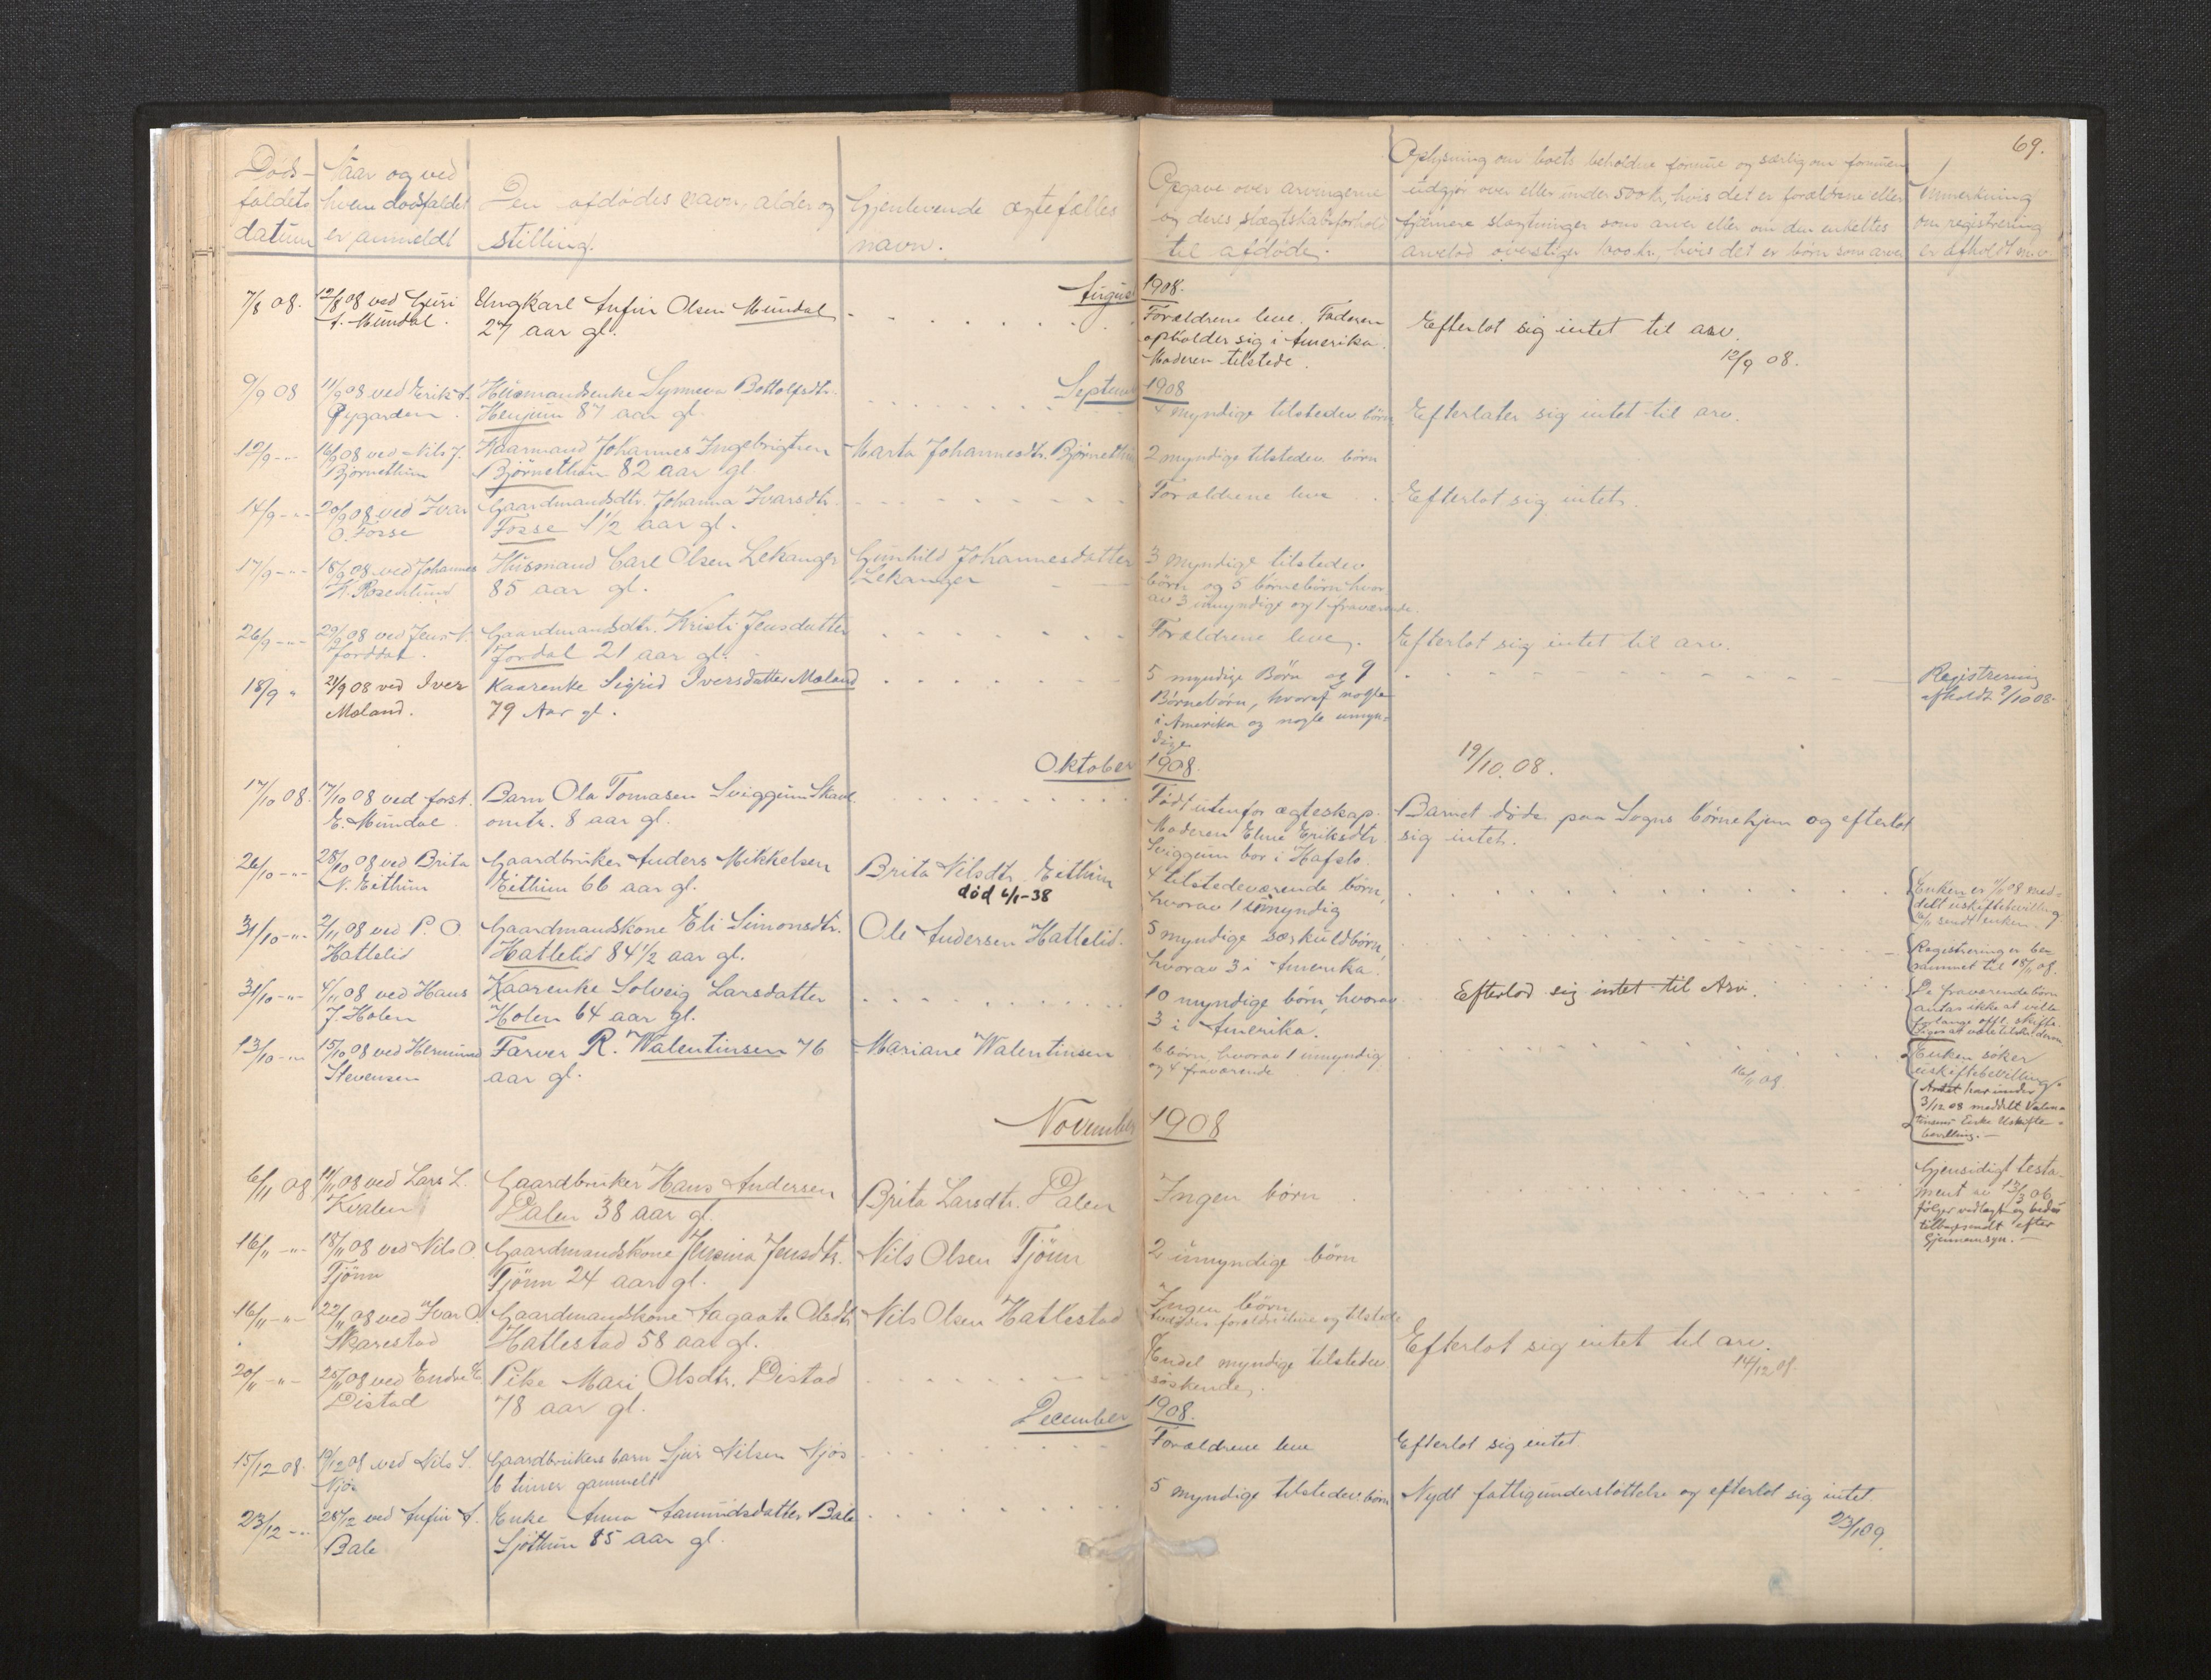 69.
Døds-
faldets
datum
Naar og ved
hvem dødsfaldet
er anmeldt
Den afdødes navn, alder og
stilling.
Gjenlevende ægtefælles
navn.
Opgave over arvingerne
og deres slægtskabsforhold
til afdøde.
Oplysning om boets beholdne formue og særlig om formuen
udgjør over eller under 500 kr, hvis det er forældrene eller
fjernere slægtninger som arver eller om den enkeltes
arvelod overstiger 1000 kr, hvis det er børn som arver
Anmerkning
om registrering
er afholdt m.v.
August 1908.
7/8 08.
12/8 08 ved Guri
A. Mundal.
Ungkarl Anfin Olsen Mundal
27 aar gl.
Forældrene leve. Faderen
opholder sig i Amerika.
Moderen tilstede.
Efterlot sig intet til arv.
12/9 08.
September 1908
9/9 08
11/9 08 ved Erik A.
Øygarden.
Husmandsenke Synneva Bottolfsdtr.
Henjum 87 aar gl.
4 myndige tilstedev børn
Efterlater sig intet til arv.
12/9 -"-
16/9 08 ved Nils J.
Bjørnethun
Kaarmand Johannes Ingebrigtsen
Bjørnethun 82 aar gl
Marta Johannesdtr. Bjørnethun
2 myndige tilstedev børn
14/9 -"-
20/9 08 ved Ivar
O. Fosse
Gaardmandsdtr. Johanna Ivarsdtr.
Fosse 1 1/2 aar gl.
Forældrene leve
Efterlot sig intet.
17/9 -"-
18/9 08 ved Johannes
K. Rosenlund
Husmand Carl Olsen Lekanger
85 aar gl.
Gunhild Johannesdatter
Lekanger
3 myndige tilstedev
børn og 5 børnebørn hvor
av 3 umyndige og 1 fraværende.
26/9 -"-
29/9 08 ved Jens A.
Jorddal.
Gaardmandsdtr. Kristi Jensdatter
Jordal 21 aar gl.
Forældrene leve.
Efterlot sig intet til arv.
18/9 "
21/9 08 ved Iver
Moland.
Kaarenke Sigrid Iversdatter Moland
79 Aar gl.
5 myndige Børn og 9
Børnebørn, hvoraf nogle
i Amerika og nogle umyn-
dige
Registrering
afholdt 9/10 08.
19/10. 08.
Oktober 1908.
17/10 08.
17/10 08 ved forst.
E. Mundal
Barn Ola Tomasen Sviggum Skaal
omtr. 8 aar gl.
Født utenfor ægteskap.
Moderen Eline Eriksdtr.
Sviggum bor i Hafslo.
Barnet døde paa Sogns børnehjem og efterlot
sig intet.
26/10 -"-
28/10 08 ved Brita
N. Eithun
Gaardbruker Anders Mikkelsen
Eithun 66 aar gl.
Brita Nilsdtr. Eithun
død 6/1-38
4 tilstedeværende børn,
hvorav 1 umyndig
Enken er 11/11 08 med-
delt uskiftebevilling
sendt enken.
31/10 -"-
2/11 08 ved P. O.
Hatlelid
Gaardmandskone Eli Simonsdtr.
Hatlelid 84 1/2 aar gl.
Ole Andersen Hatlelid.
5 myndige særkuldbørn,
hvorav 3 i Amerika.
Registrering er be-
rammet til 18/11 08.
31/10 -"-
4/11 08 ved Hans
J. Holen
Kaarenke Solveig Larsdatter
Holen 64 aar gl.
10 myndige børn, hvorav
3 i Amerika.
Efterlod sig intet til Arv.
De fraværende børn
antas ikke at ville
forlange offl. skifte.
13/10 -"-
15/10 08 ved Hermund
Stevensen
Farver R. Walentinsen 76
aar gl.
Mariane Walentinsen
6 børn, hvorav 1 umyndig
og 4 fraværende
16/11 08
Enken søker
uskiftebevilling.
Amtet har under
3/12 08 meddelt Valen-
tinsens Enke Uskifte-
bevilling.
November 1908
6/11 08
14/11 08 ved Lars L.
Kvalen
Gaardbruker Hans Andersen
Dalen 38 aar gl.
Brita Larsdtr. Dalen
Ingen børn
Gjensidigt testa-
ment av 13/3 06
følger vedlagt og bedes
tilbagesendt efter
Gjennemsyn.
16/11 -"-
18/11 08 ved Nils O.
Tjønn
Gaardmandskone Jensina Jensdtr.
Tjønn 24 aar gl.
Nils Olsen Tjønn
2 umyndige børn
16/11 -"-
22/11 08 ved Ivar O.
Skarestad
Gaardmandskone Aagaata Olsdtr
Hatlestad 58 aar gl.
Nils Olsen Hatlestad
Ingen børn
Efterlot sig intet til arv.
14/12 08.
20/11 -"-
25/11 08 ved Endre E.
Distad
Pike Mari Olsdtr. Distad
78 aar gl.
Endel myndige tilstedev
søskende.
December 1908.
15/12 08.
19/12 08 ved Nils S.
Njøs
Gaardbrukers barn Sjur Nilsen Njøs
6 timer gammelt
Forældrene leve
Efterlot sig intet
23/12 -"-
28/12 ved Anfin A.
Bale
Enke Anna Aamundsdatter Bale
Sjøthun 85 aar gl.
5 myndige tilstedev børn
Nydt fattigunderstøttelse og efterlot sig intet.
23/1 09.